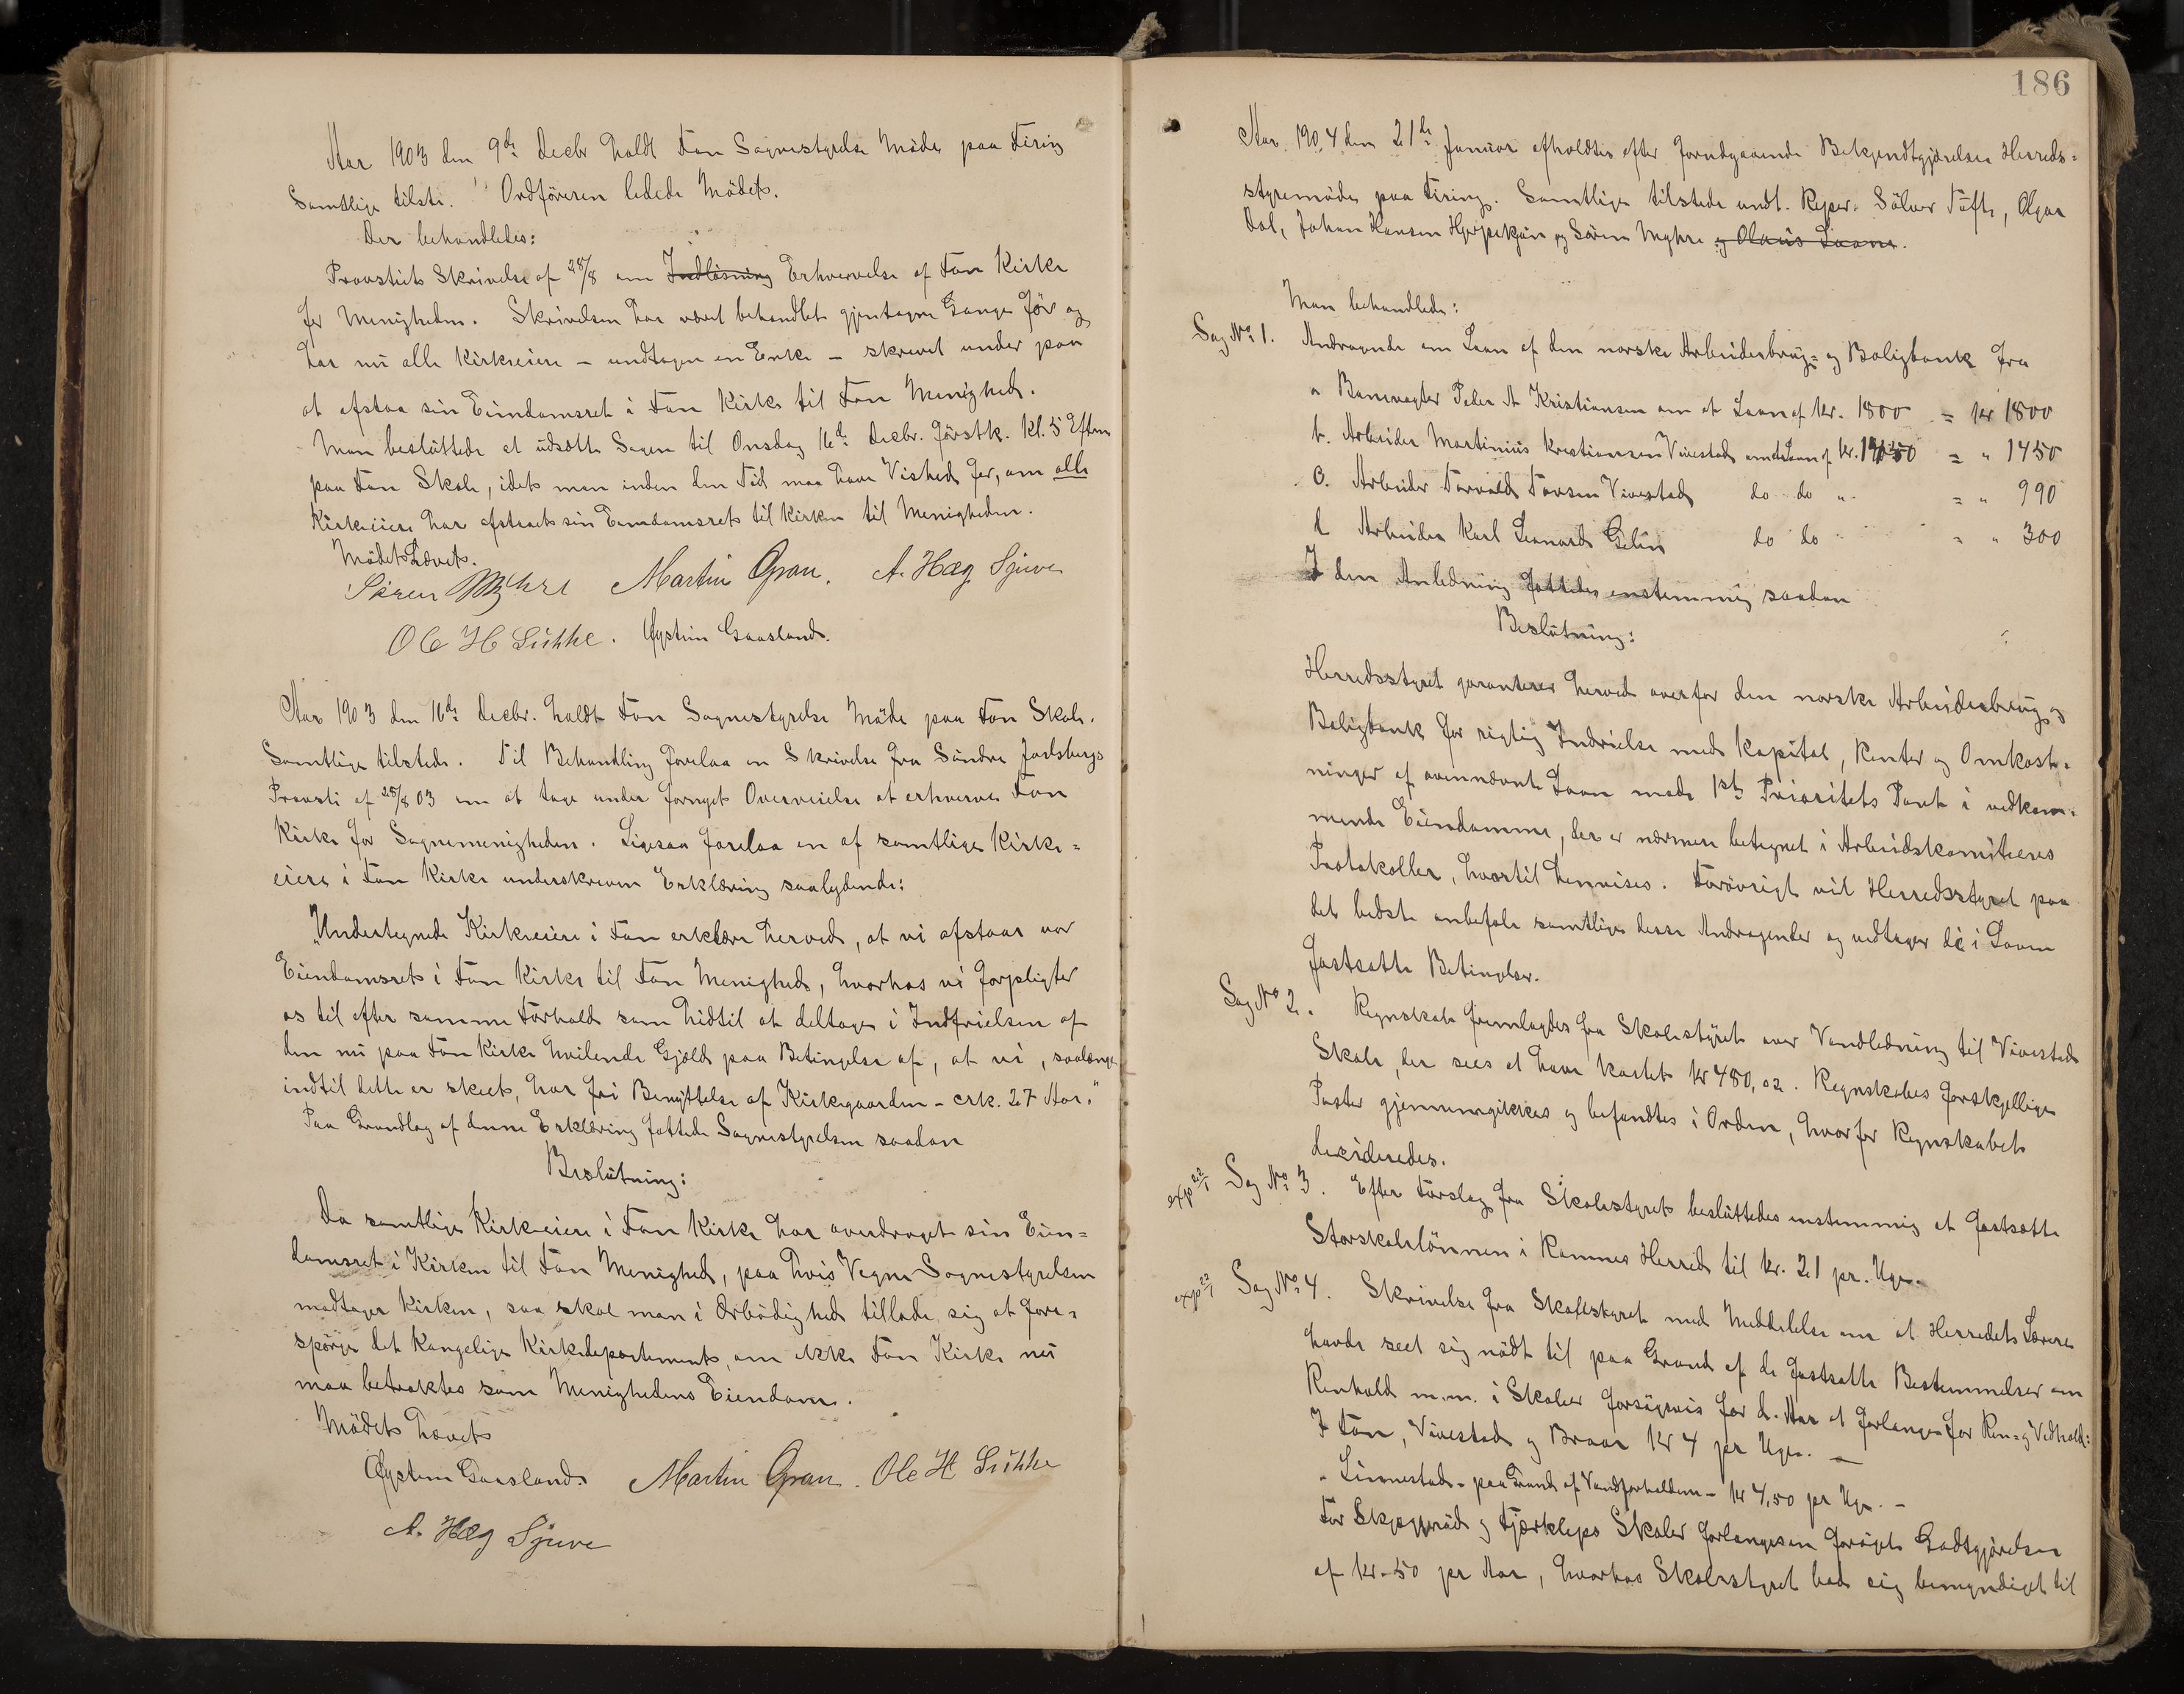 Aar 1903 den 9de Decbr holdt Fon Sognestyrelse Møde paa Firing
Samtlige tilste. Ordföreren ledede Mödet.
Der behandledes:
Provstiets Skrivelse af 28/8 om Indlösning Erhvervelse af Fon Kirke
for Menigheden. Skrivelsen har været behandlet gjentagne Gange før og
har nu alle Kirkeeiere – undtagen en Enke – skrevet under paa
at afstaa sin Eiendomsret i Fon Kirke til Fon Menighed.
Man besluttede at udsætte Sagen til Onsdag 16de Decbr. förstk. Kl. 5 Efterm
paa Fon Skole, idet man inden den Tid maa have Vished for, om alle
Kirkeeiere har afstaaet sin Eiendomsret til Kirken til Menigheden.
Mödet hævet.
Søren Myhre Martin Gran. A. Hæg Sjuve
Ole H Lükke. Øystein Gaasland.
Aar 1903 den 16de Decbr. holdt Fon Sognestyrelse Möde paa Fon Skole.
Samtlige tilstede. Til Behandling forelaa en Skrivelse fra Söndre Jarlsbergs
Provsti af 28/8 03 om at tage under fornyet Overveielse at erhverve Fon
Kirke for Sognemenigheden. Ligesaa forelaa en af samtlige Kirke=
eiere i Fon Kirke underskreven Erklæring saalydende:
"Undertegnede Kirkeeiere i Fon erklære herved, at vi afstaar vor
Eiendomsret i Fon Kirke til Fon Menighed, hvorhos vi forpligter
os til efter samme Forhold som hidtil at deltage i Indfrielsen af
den nu paa Fon Kirke hvilende Gjæld paa Betingelse af, at vi, saalænge
indtil dette er skeet, har fri Benyttelse af Kirkegaarden – crk. 27 Aar."
Paa Grundlag af denne Erklæring fattede Sognestyrelsen saadan
Beslutning:
Da samtlige Kirkeeiere i Fon Kirke har overdraget sin Eien=
domsret i Kirken til Fon Menighed, paa hvis Vegne Sognestyrelsen
modtager Kirken, saa skal man i Ærbödighed tillade sig at fore=
spörge det Kongelige Kirkedepartement, om ikke Fon Kirke nu
maa betraktes som Menighedens Eiendom.
Mödet hævet
Øystein Gaasland. Martin Gran. Ole H Lükke
A. Hæg Sjuve
186
Aar 1904 den 21de Januar afholdtes efter forudgaaende Bekjendtgjörelse Herreds=
styremöde paa Firing. Samtlige tilstede undt. Repr. Sölver Tufte, Olgar
Dal, Johan Hansen Hjerpekjön og Sören Myhre og Olaus Laane.
Man behandlede:
Sag No 1. Andragende om Laan af den norske Arbeiderbrug= og Boligbank fra
a Banevogter Peder A Kristiansen om et Laan af kr. 1800 = kr 1800
b. Arbeider Martinius Kristiansen Vivestad om et Laan af kr. 1450 = " 1450
c. Arbeider Torvald Torsen Vivestad do do " = " 990
d Arbeider Karl Leonard Gelin do do " = " 300
I den Anledning fattedes enstemmig saadan
Beslutning:
Herredsstyret garanterer herved overfor den norske Arbeiderbrug og
Boligbank for rigtig Indfrielse med Kapital, Renter og Omkost=
ninger af ovennævnte Laan mode 1ste Prioritets Pant i vedkom=
mende Eiendomme, der er nærmere betegnet i Arbeidskomiteens
Protokoller, hvortil henvises. Forövrigt vil Herredsstyret paa
det bedste anbefale samtlige disse Andragender og vedtager de i Loven
fastsatte Betingelser.
Sag No 2. Regnskab fremlagdes fra Skolestyret over Vandledning til Vivestad
Skole, der sees at have kostet kr 480,02. Regnskabets forskjellige
Poster gjennemgikkes og befandtes i Orden, hvorfor Regnskabet
desideredes.
exp 22/1 Sag No 3. Efter Forslag fra Skolestyret besluttedes enstemmig at fastsætte
Storskolelönnen i Ramnes Herred til kr. 21 pr. Uge.
exp 22/1 Sag No 4. Skrivelse fra Skolestyret med Meddelelse om at Herredets Lærere
havde seet sig nödt til paa Grund af de fastsatte Bestemmelser om
Renhold m.m. i Skoler forsögsvis for d. Aar at forlange for Ren- og Vedhold:
I Fon, Vivestad og Braar kr 4 pr Uge. –
" Linnestad – paa Grund af Vandforholdene – kr 4,50 pr Uge. –
For Skjæggeröd og Fjærklep Skoler forlanges en forøget Godtgjörelse
af kr. 50 pr Aar, hvorhos Skolestyret bad sig bemyndiget til